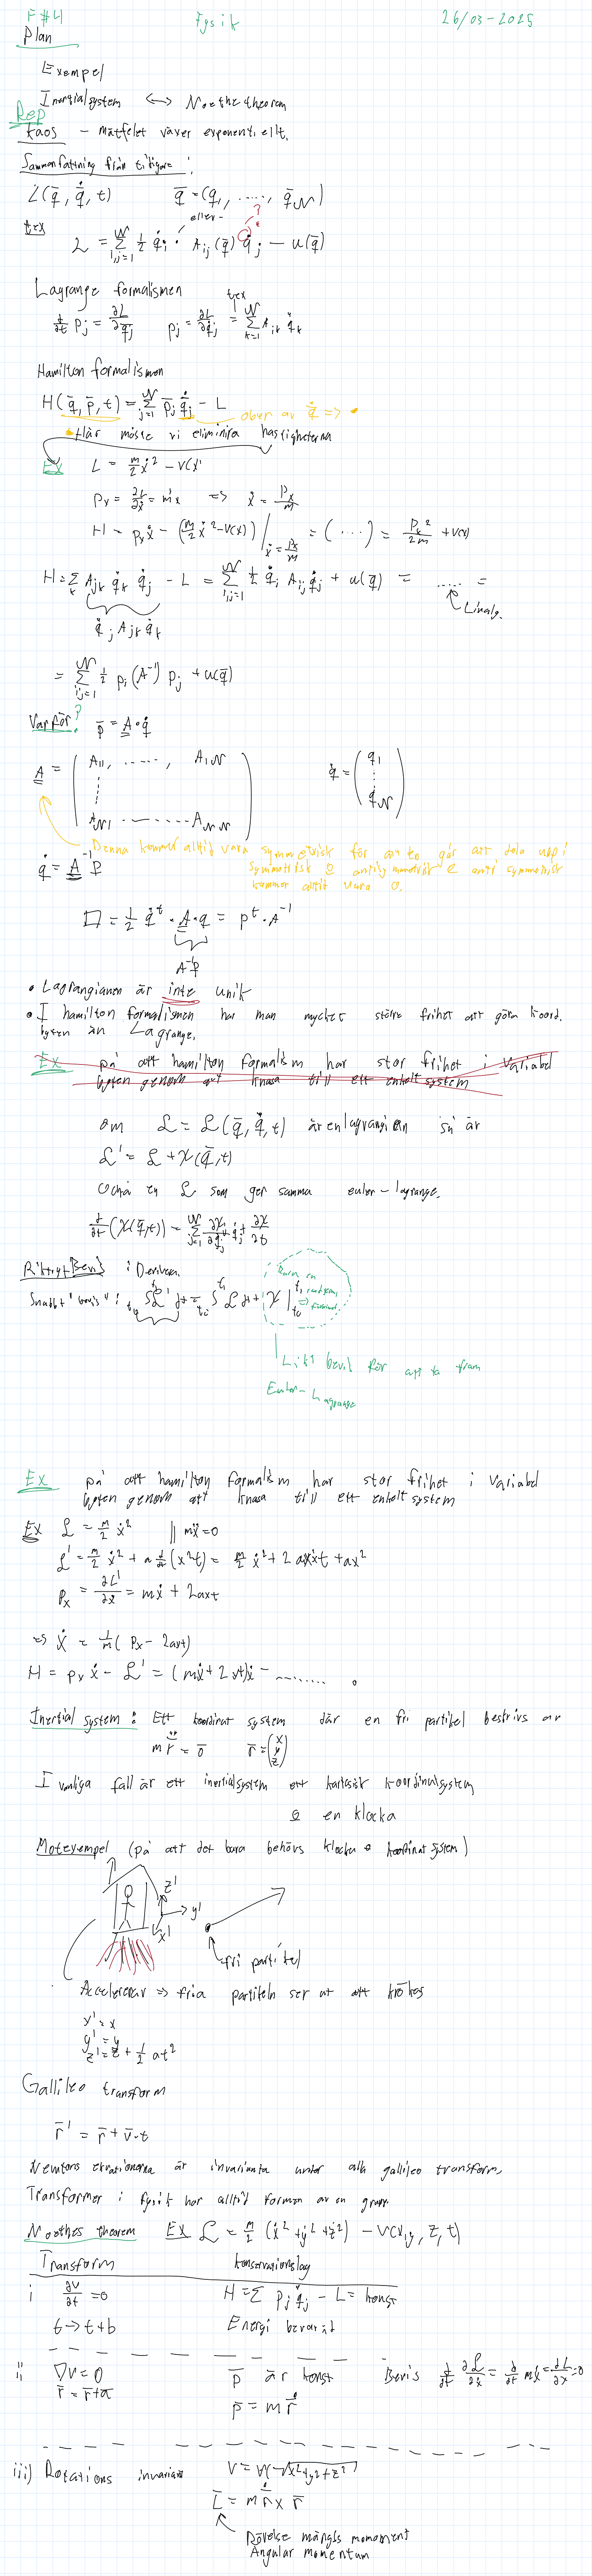 F #4 Fysik 26/03-2025
Plan
Exempel
Inertialsystem <-> Noether theorem
Rep
Kaos - mätfelet växer exponentiellt.
Sammanfattning från tidigare:
L(q̄, q̄̇, t) q̄ = (q₁, ....., q̄_N)
eller ?
tex L = Σ_{i,j=1}^N ½ q̇ᵢ · A_ij(q̄) q̇_j - u(q̄)
Lagrange formalismen
d/dt p_j = ∂L/∂q_j p_j = ∂L/∂q̇_j =(tex) Σ_{k=1}^N A_jk q̇_k
Hamilton formalismen
H(q̄, p̄, t) = Σ_{j=1}^N p̄_j q̄̇_j - L
beror av q̄̇ =>
Här måste vi eliminera hastigheterna
EX L = m/2 ẋ² - V(x)
p_x = ∂L/∂ẋ = mẋ => ẋ = p_x/m
H = p_x ẋ - (m/2 ẋ² - V(x)) |_{ẋ = p_x/m} = (...) = p_x²/2m + V(x)
H = Σ_k A_jk q̇_k q̇_j - L = Σ_{i,j=1}^N ½ q̇ᵢ A_ij q̇_j + u(q̄) = ..... =
q̇_j A_jk q̇_k
Linalg.
= Σ_{i,j=1}^N ½ pᵢ (A⁻¹) p_j + u(q̄)
Varför? p̄ = A · q̇
A = ( A₁₁, ....., A₁N ⋮ A_N1 ....... A_NN ) q̇ = ( q₁ ⋮ q̇_N )
Denna kommer alltid vara symmetrisk för att går att dela upp i
symmetrisk & antisymmetrisk & anti symmetrisk
kommer alltid vara 0.
q̇ = A⁻¹ p̄
□ = ½ q̇ᵗ · A · q = pᵗ · A⁻¹
A⁻¹p̄
• Lagrangianen är inte unik
• I hamilton formalismen har man mycket större frihet att göra koord.
byten än Lagrange.
EX på att hamilton formalism har stor frihet i variabel
byten genom att knasa till ett enkelt system
om L = L(q̄, q̄̇, t) är en lagrangian så är
L' = L + χ(q̄, t)
också en L som ger samma euler-lagrange.
d/dt (χ(q̄, t)) = Σ_{j=1}^N ∂χ/∂q_j q̇_j + ∂χ/∂t
Riktigt Bevis: Derivera.
Snabbt "bevis": ∫_{t₀}^{t₁} L' dt = ∫_{t₀}^{t₁} L dt + χ |_{t₀}^{t₁}
Bara en
Likt bevis för att ta fram
Euler-Lagrange
EX på att hamilton formalism har stor frihet i variabel
byten genom att knasa till ett enkelt system
EX L = m/2 ẋ² || mẍ = 0
L' = m/2 ẋ² + a d/dt (x²t) = m/2 ẋ² + 2aẋxt + ax²
p_x = ∂L'/∂ẋ = mẋ + 2axt
=> ẋ = 1/m (p_x - 2axt)
H = p_x ẋ - L' = (mẋ + 2xt)ẋ - ........ .
Inertial system: Ett koordinat system där en fri partikel beskrivs av
m r̄̈ = 0̄ r̄ = (x y z)
I vanliga fall är ett inertialsystem ett kartesiskt koordinatsystem
& en klocka
Motexempel (på att det bara behövs klocka + koordinat system)
z'
y'
x'
fri partikel
Accelererar => fria partikeln ser ut att krökas
x' = x
y' = y
z' = z + ½ at²
Gallileo transform
r̄' = r̄ + v̄·t
Newtons ekvationerna är invarianta under alla gallileo transform.
Transformer i fysik har alltid formen av en grupp.
Noethes theorem EX L = m/2 (ẋ² + ẏ² + ż²) - V(x, y, z, t)
Transform konservationslag
i ∂V/∂t = 0 H = Σ p_j q̇_j - L = konst
t -> t+b Energi bevarad
ii ∇V = 0 p̄ är konst Bevis d/dt ∂L/∂ẋ = d/dt mẋ = ∂L/∂x = 0
r̄ = r̄+ā p̄ = m r̄̇
iii) Rotations invarians V = V(√x²+y²+z²)
L̄ = m r̄̇ × r̄
Rörelse mängds momoment
Angular momentum